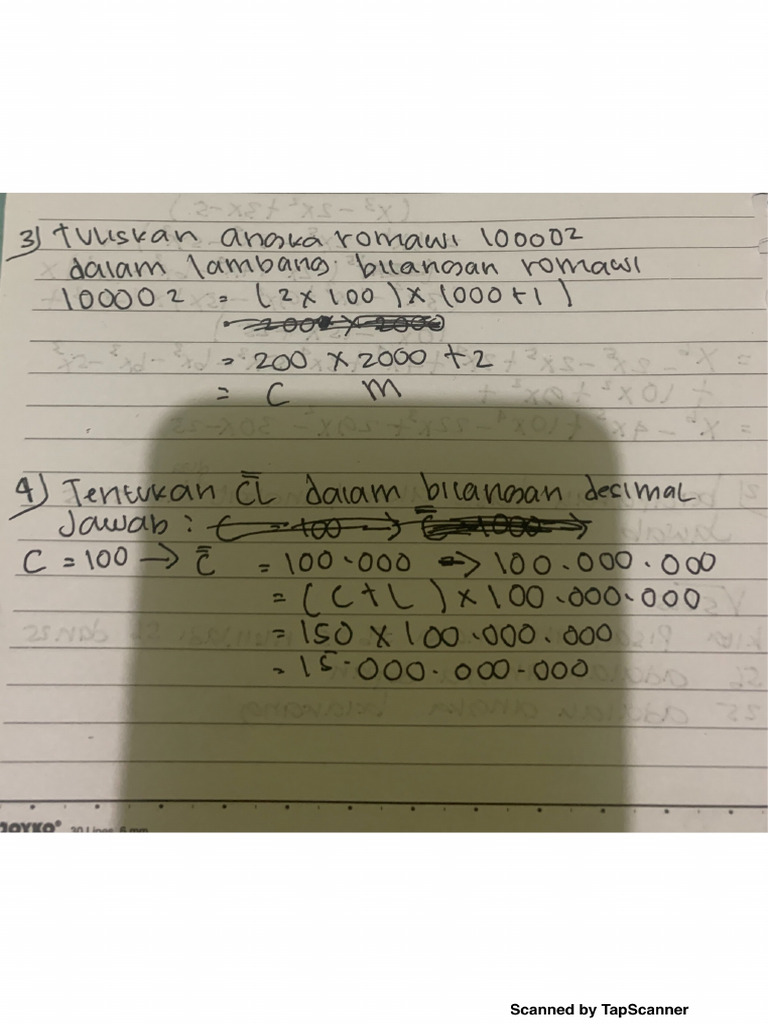 3) tuliskan angka romawi 100002
dalam lambang bilangan romawi
100002 = (2 x 100) x 1000 + 1)
= 200 x 2000 + 2
= C M
4) Tentukan C̿L dalam bilangan desimal
Jawab : C = 100 → C̿ = 1000 →
C = 100 → C̿ = 100.000 => 100.000.000
= (C + L) x 100.000.000
= 150 x 100.000.000
= 15.000.000.000
JOYKO® 30 Lines, 6 mm
Scanned by TapScanner